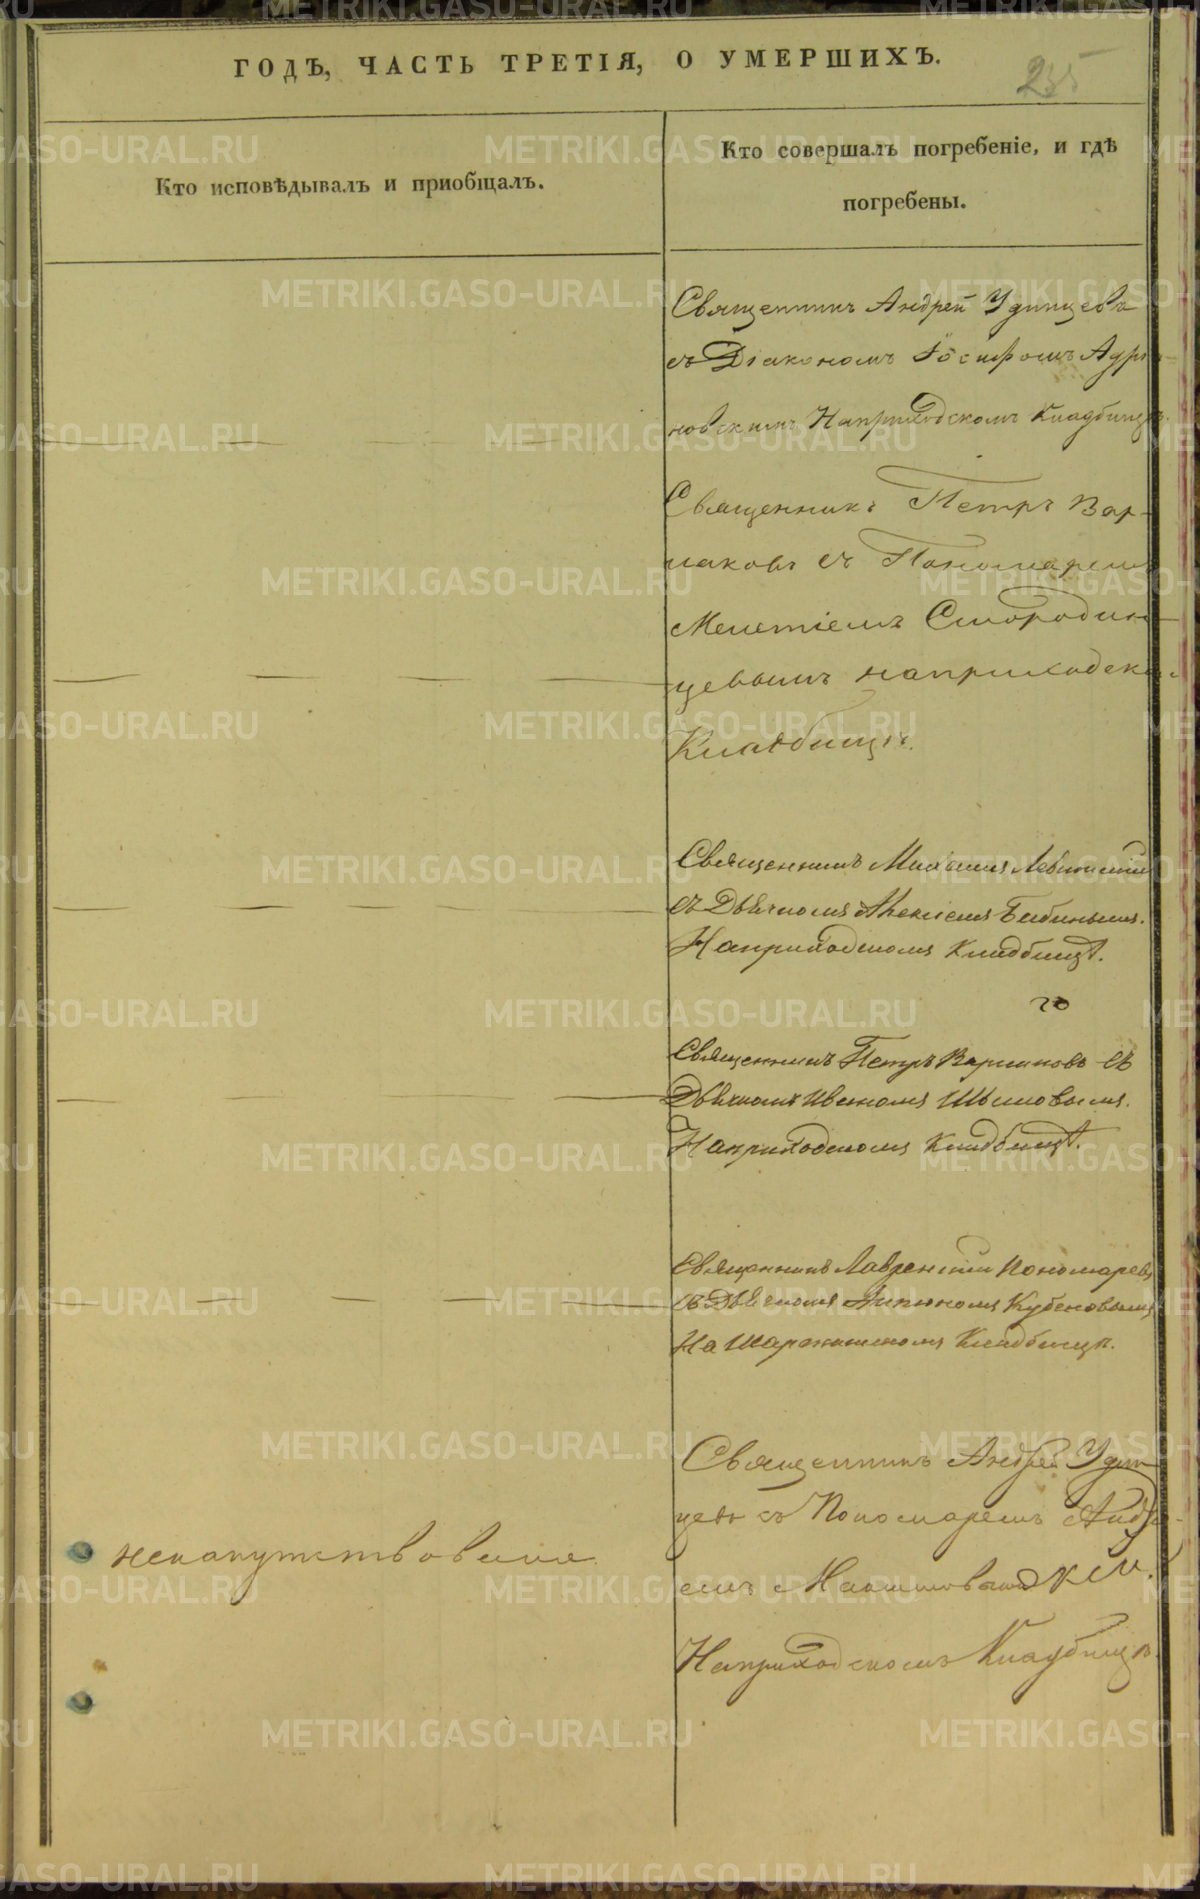 ГОДЪ, ЧАСТЬ ТРЕТІЯ, О УМЕРШИХЪ.
235
Кто исповѣдывалъ и пріобщалъ.
Кто совершалъ погребеніе, и гдѣ
погребены.
Священникъ Андрей Удинцевъ
съ Діакономъ Іосифомъ Адріа-
новскимъ Наприходскомъ Кладбищѣ.
Священникъ Петръ Вар-
лаковъ съ Пономаремъ
Мелетіемъ Смородин-
цевымъ наприходско
Кладбищѣ.
Священникъ Михаилъ Левитскій
съ Дьячкомъ Алексіемъ Бабинымъ.
Наприходскомъ Кладбищѣ.
Священникъ Петръ Варлаковъ съ
Дьячкомъ Иваномъ
Наприходскомъ Кладбищѣ.
Священникъ Лаврентій Пономаревъ
съ Дьячкомъ Кубеновымъ
На Кладбищѣ.
Священникъ Андрей Удин
цевъ съ Пономаремъ Андре-
емъ
ненапутствована
Наприходскомъ Кладбищѣ.
METRIKI.GASO-URAL.RU